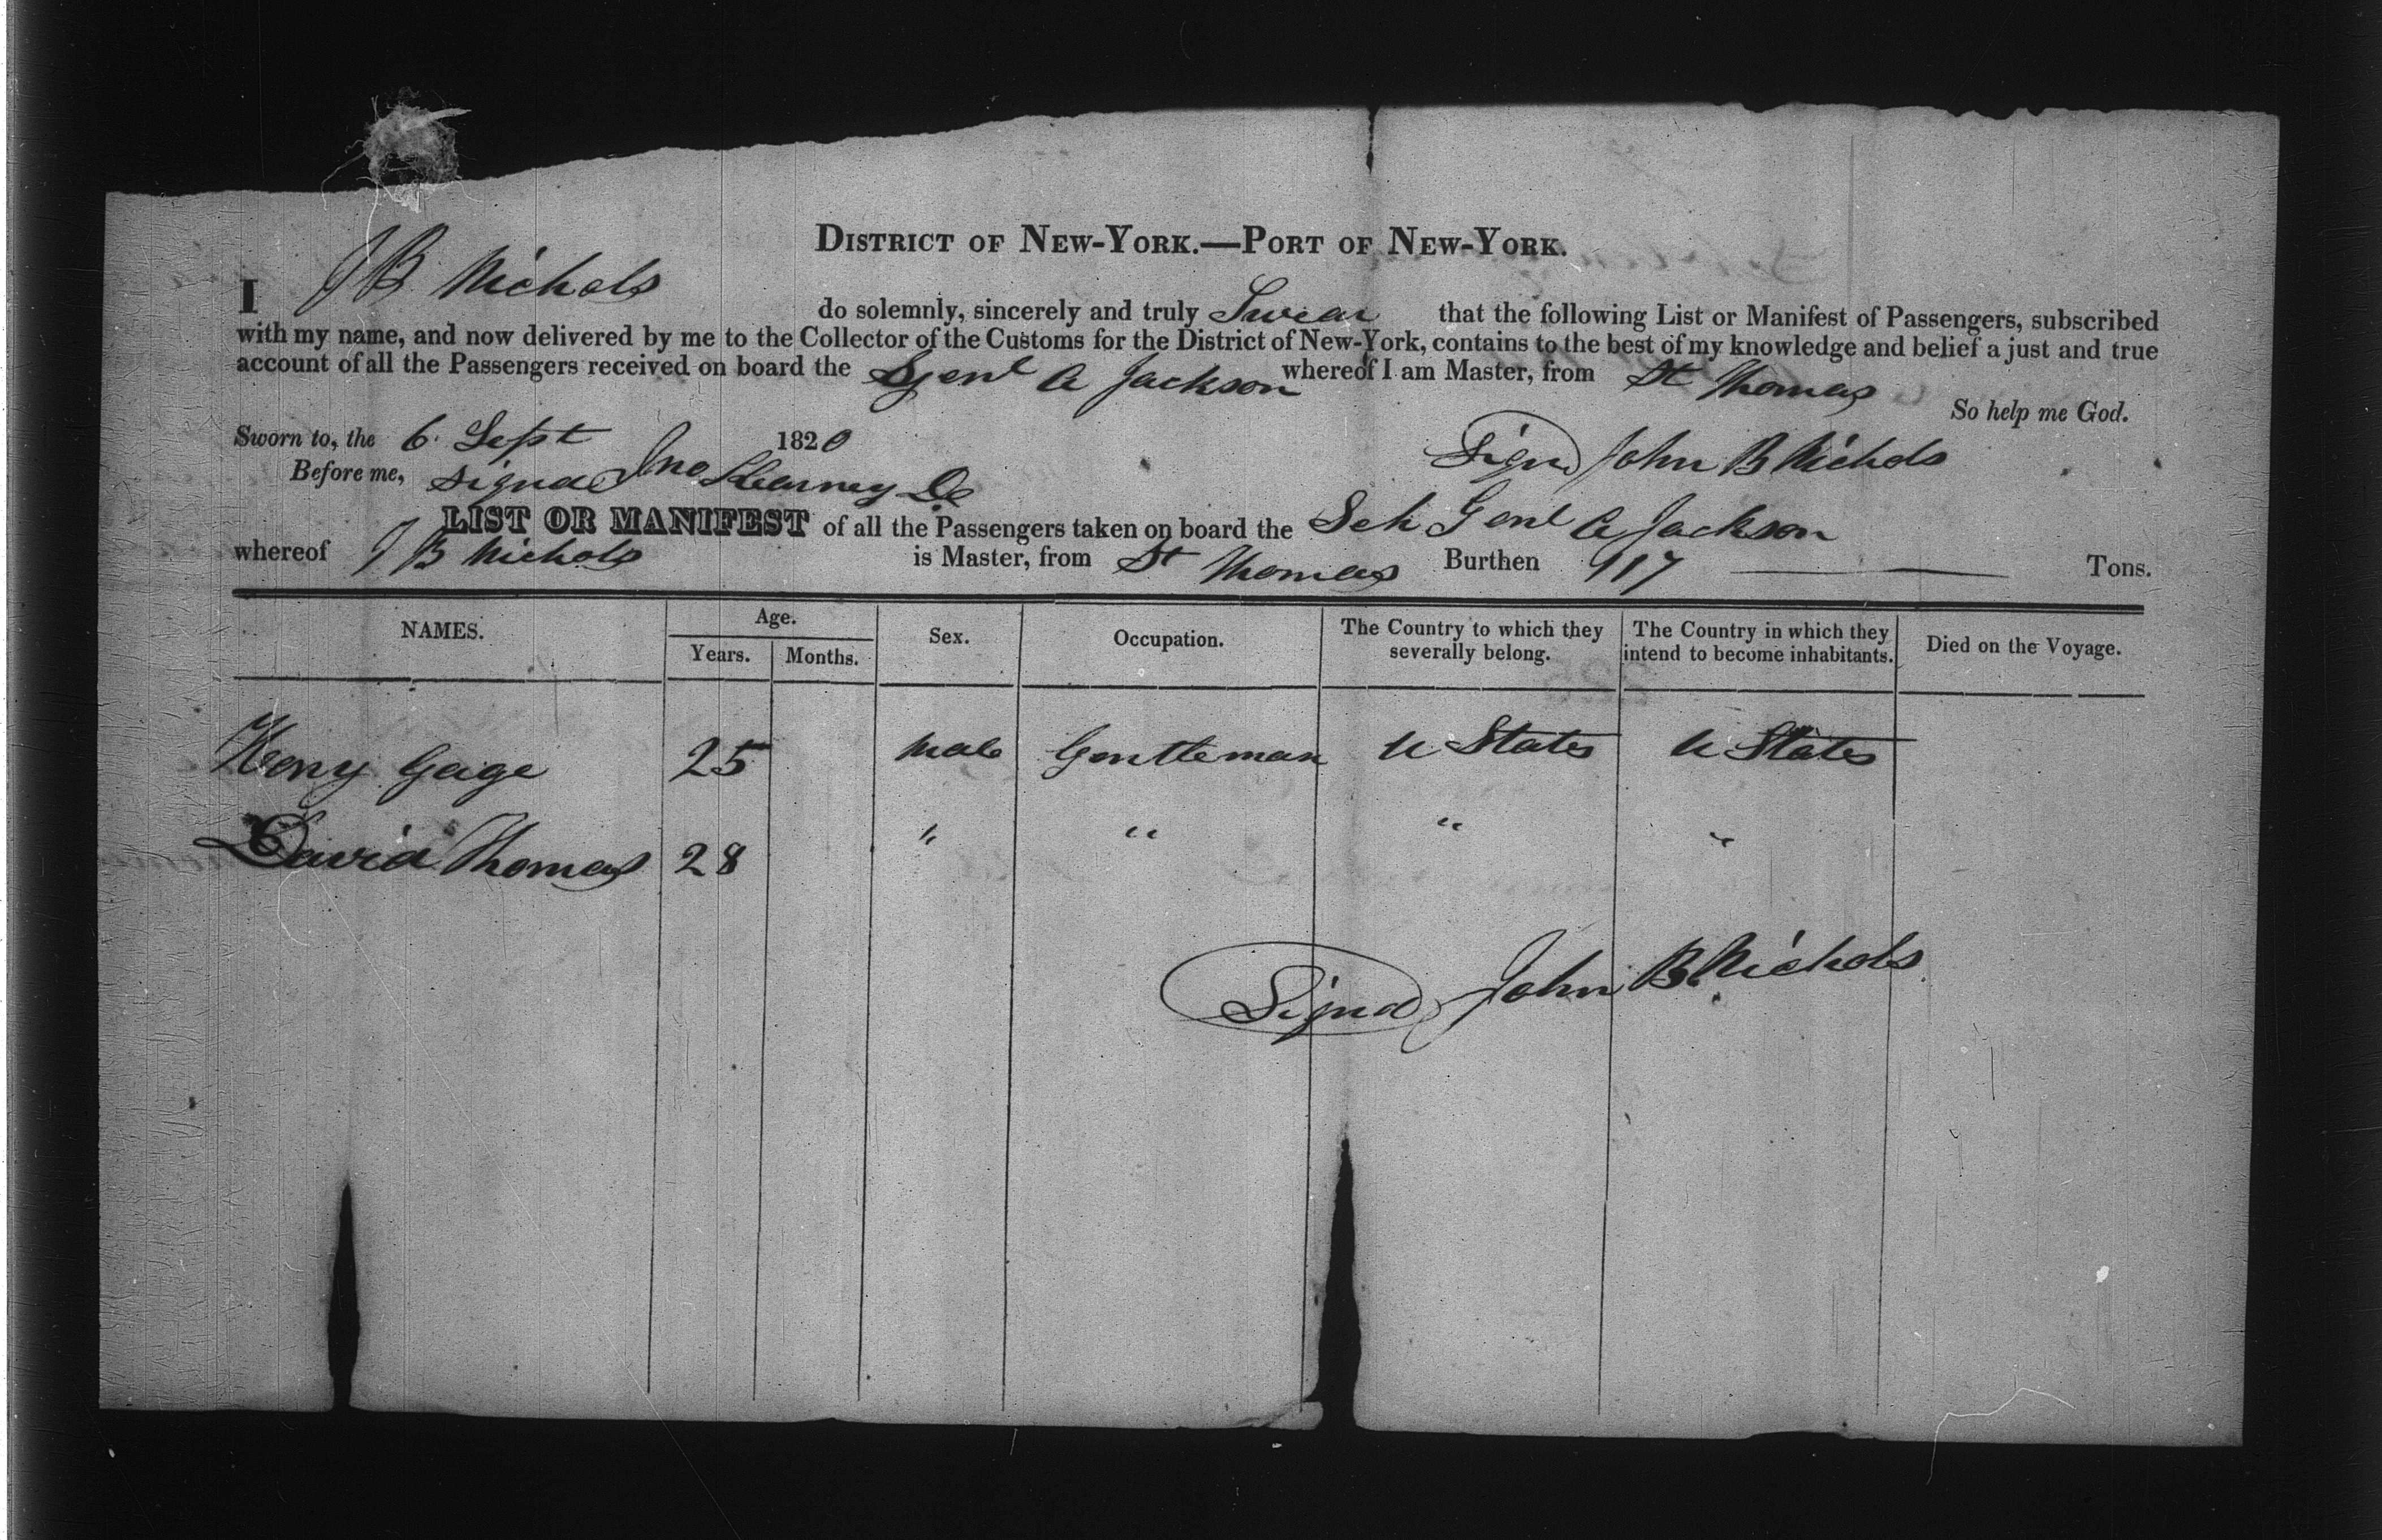 DISTRICT OF NEW-YORK.—PORT OF NEW-YORK.
I J B Nichols do solemnly, sincerely and truly Swear that the following List or Manifest of Passengers, subscribed
with my name, and now delivered by me to the Collector of the Customs for the District of New-York, contains to the best of my knowledge and belief a just and true
account of all the Passengers received on board the Genl A Jackson whereof I am Master, from St Thomas
So help me God.
Sworn to, the 6 Sept 1820
Signd John B Nichols
Before me, signd Jno Kearney
LIST OR MANIFEST of all the Passengers taken on board the Sch Genl A Jackson
whereof J B Nichols is Master, from St Thomas Burthen 117 Tons.
NAMES. Age. Years. Months. Sex. Occupation. The Country to which they severally belong. The Country in which they intend to become inhabitants. Died on the Voyage.
Henry Gage 25 Male Gentleman U States U States
David Thomas 28 " " " "
Signd John B Nichols